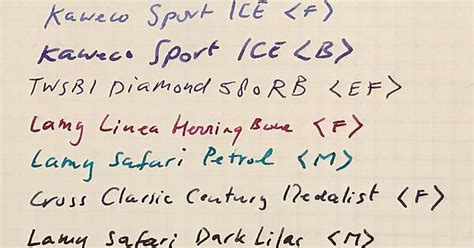 Kaweco Sport ICE <F>
Kaweco Sport ICE <B>
TWSBI Diamond 580RB <EF>
Lamy Linea Herring Bone <F>
Lamy Safari Petrol <M>
Cross Classic Century Medalist <F>
Lamy Safari Dark Lilac <M>